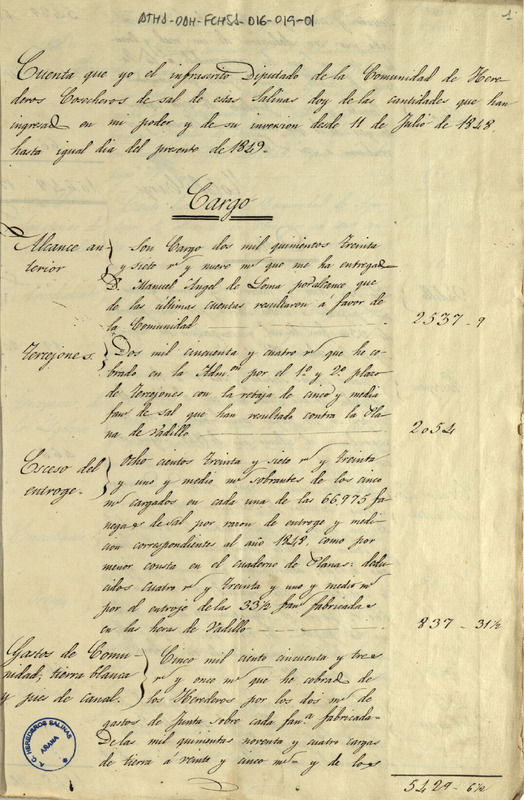 ATHA-DAH-FCHSA-016-019-01
1
Cuenta que yo el infrascrito Diputado de la Comunidad de Here-
deros Cosecheros de sal de estas Salinas doy de las cantidades que han
ingresad en mi poder y de su inversion desde 11 de Julio de 1848
hasta igual dia del presente de 1849.
Cargo
Alcance an-
terior
Son Cargo dos mil quinientos treinta
y siete rs y nueve ms que me ha entregado
D. Manuel Angel de Loma por alcance que
de las ultimas cuentas resultaron á favor de
la Comunidad
2537-9
Torrejones.
Dos mil cincuenta y cuatro rs que he co-
brado en la Admon por el 1º y 2º plazo
de Torrejones con la rebaja de cinco y media
fans de sal que han resultado contra la Pla-
na de Vadillo
2054
Esceso del
entroge.
Ocho cientos treinta y siete rs y treinta
y uno y medio ms sobrantes de los cinco
ms cargados en cada una de las 66,975 fa-
negas de sal por razon de entroge y medi-
cion correspondientes al año 1848, como por
menor consta en el cuaderno de Planas: dedu-
cidos cuatro rs y treinta y uno y medio ms
por el entroje de las 33½ fans fabricadas
en las heras de Vadillo
837-31½
Gastos de Comu-
nidad, tierra blanca
y pies de canal.
Cinco mil ciento cincuenta y tres
rs y once ms que he cobrado de
los Herederos por los dos ms de
gastos de Junta sobre cada fana fabricada-
De las mil quinientas noventa y cuatro cargas
de tierra á veinte y cinco ms y de los
5429-6½
A. C. HEREDEROS SALINAS
AÑANA